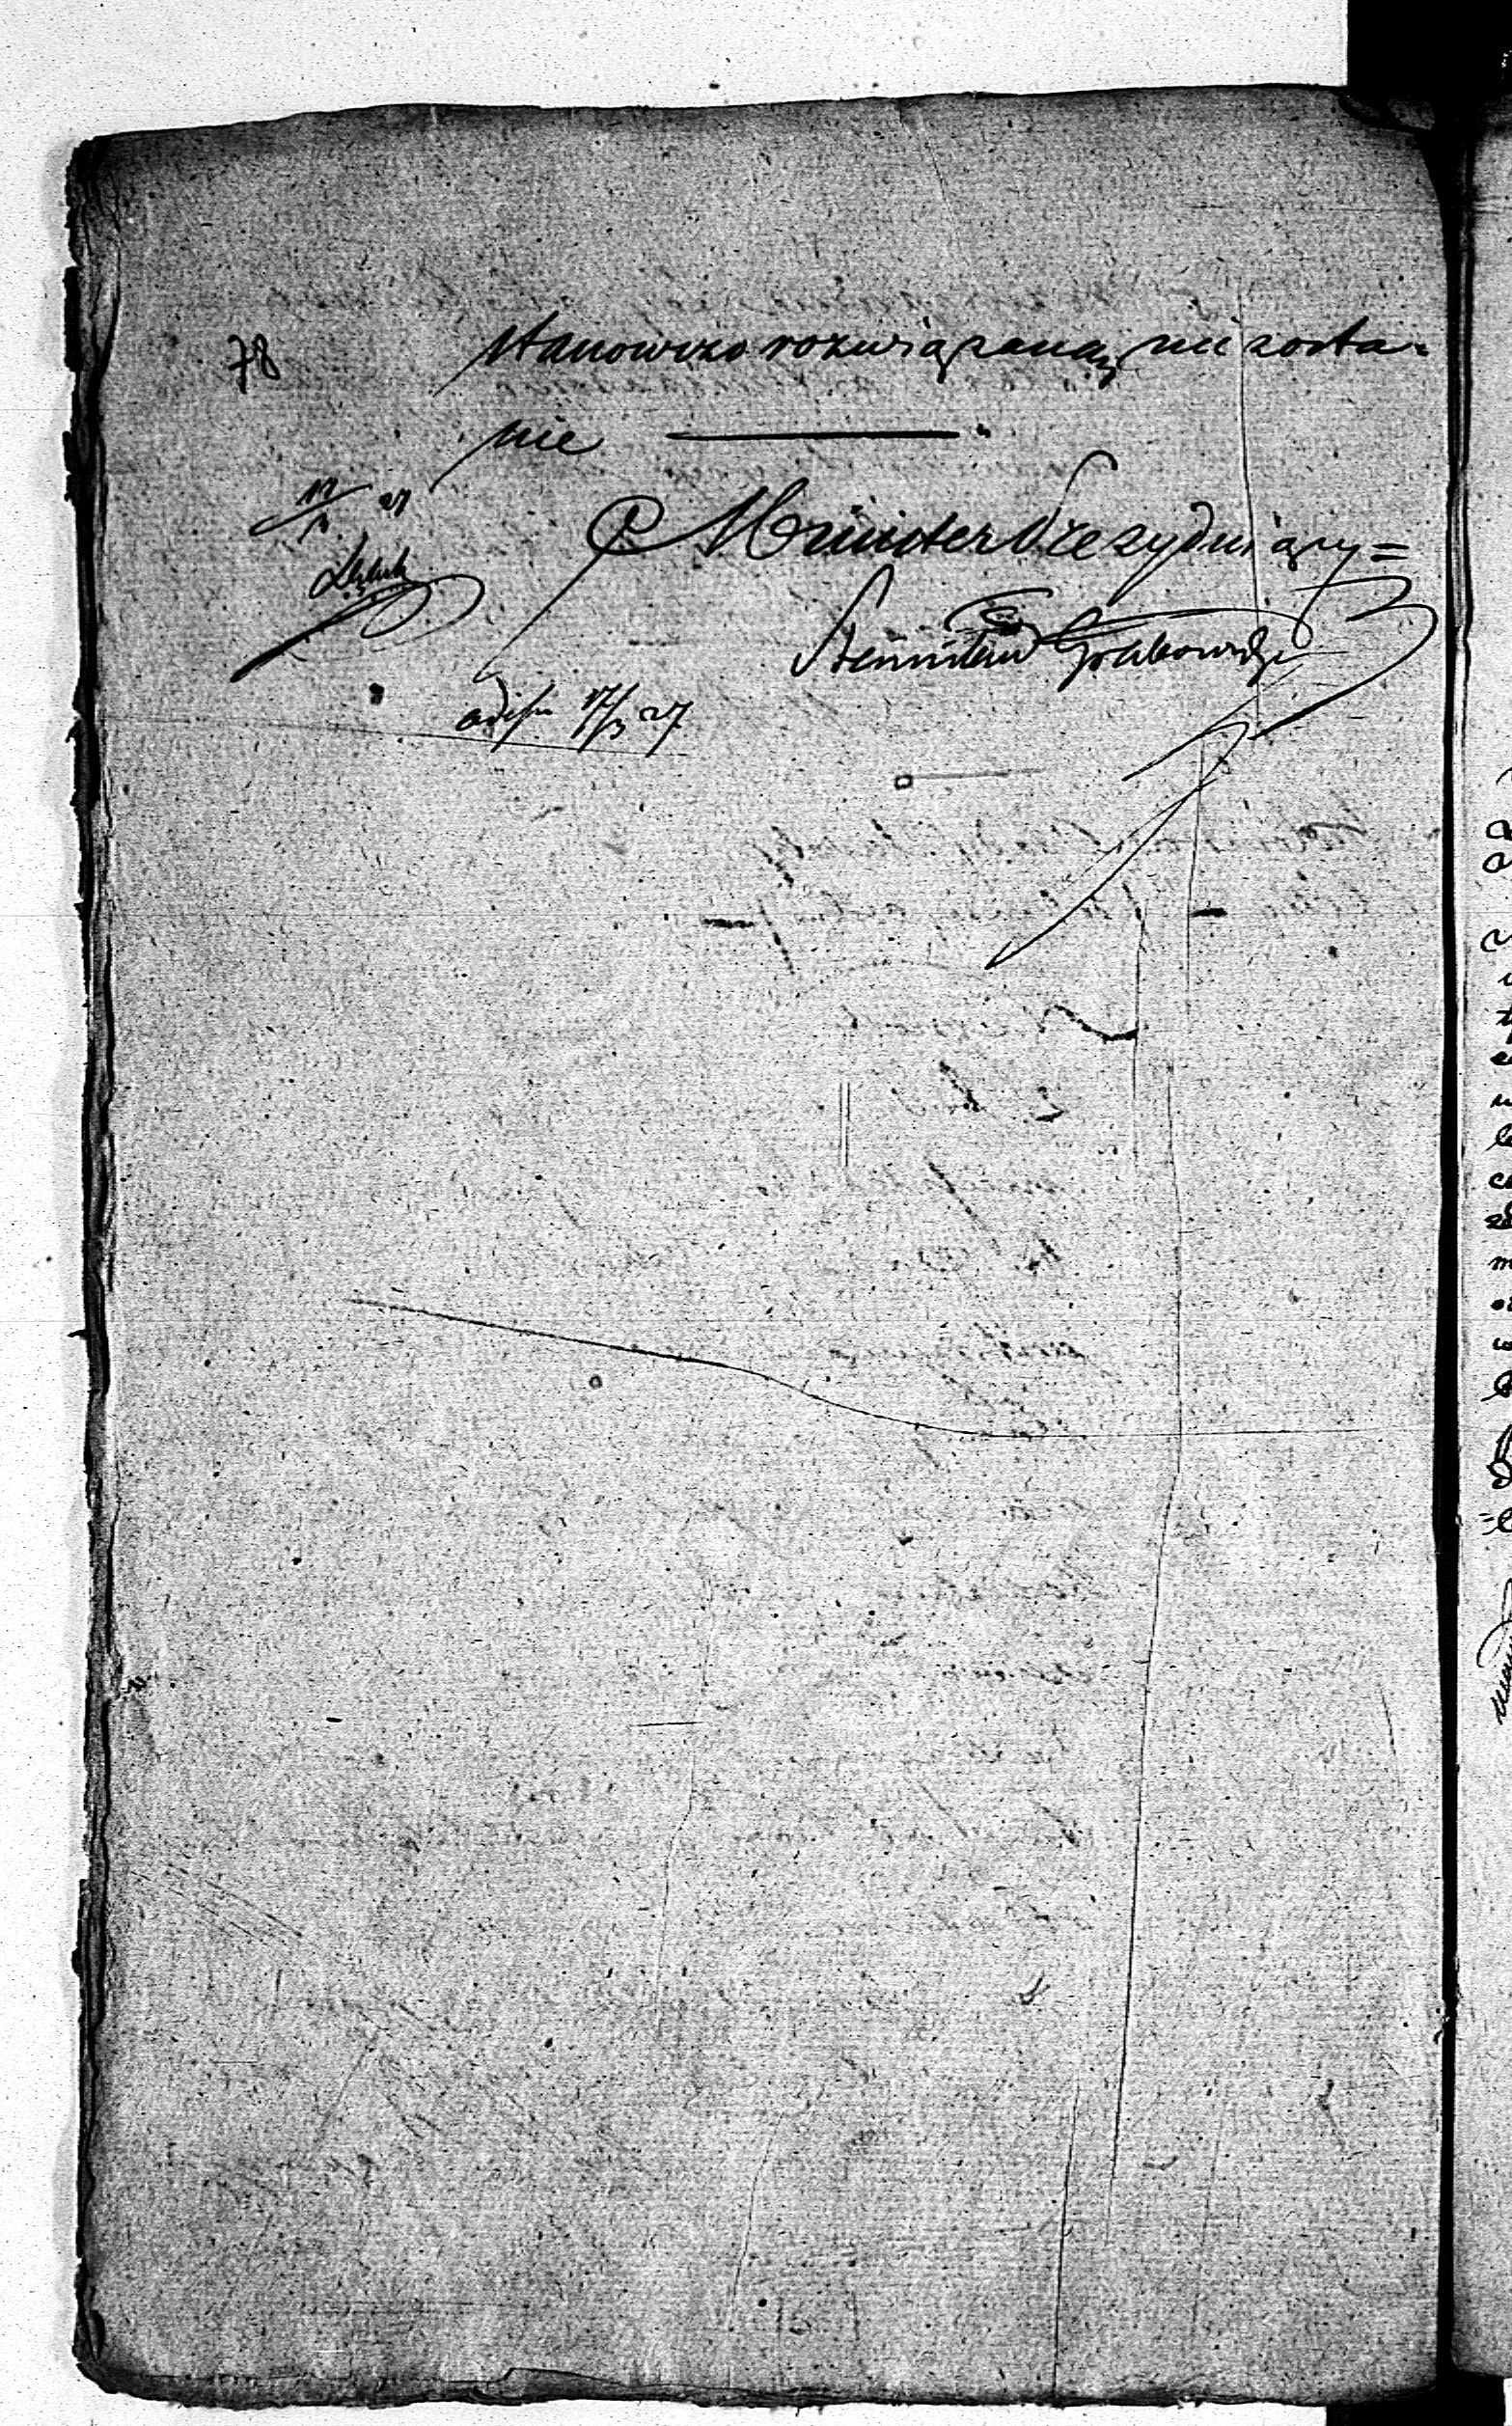 78
stanowczo rozwiązaną nie zosta-
nie
17/3 27
Minister Prezydujący=
Stanisław Grabowski
17/3 27